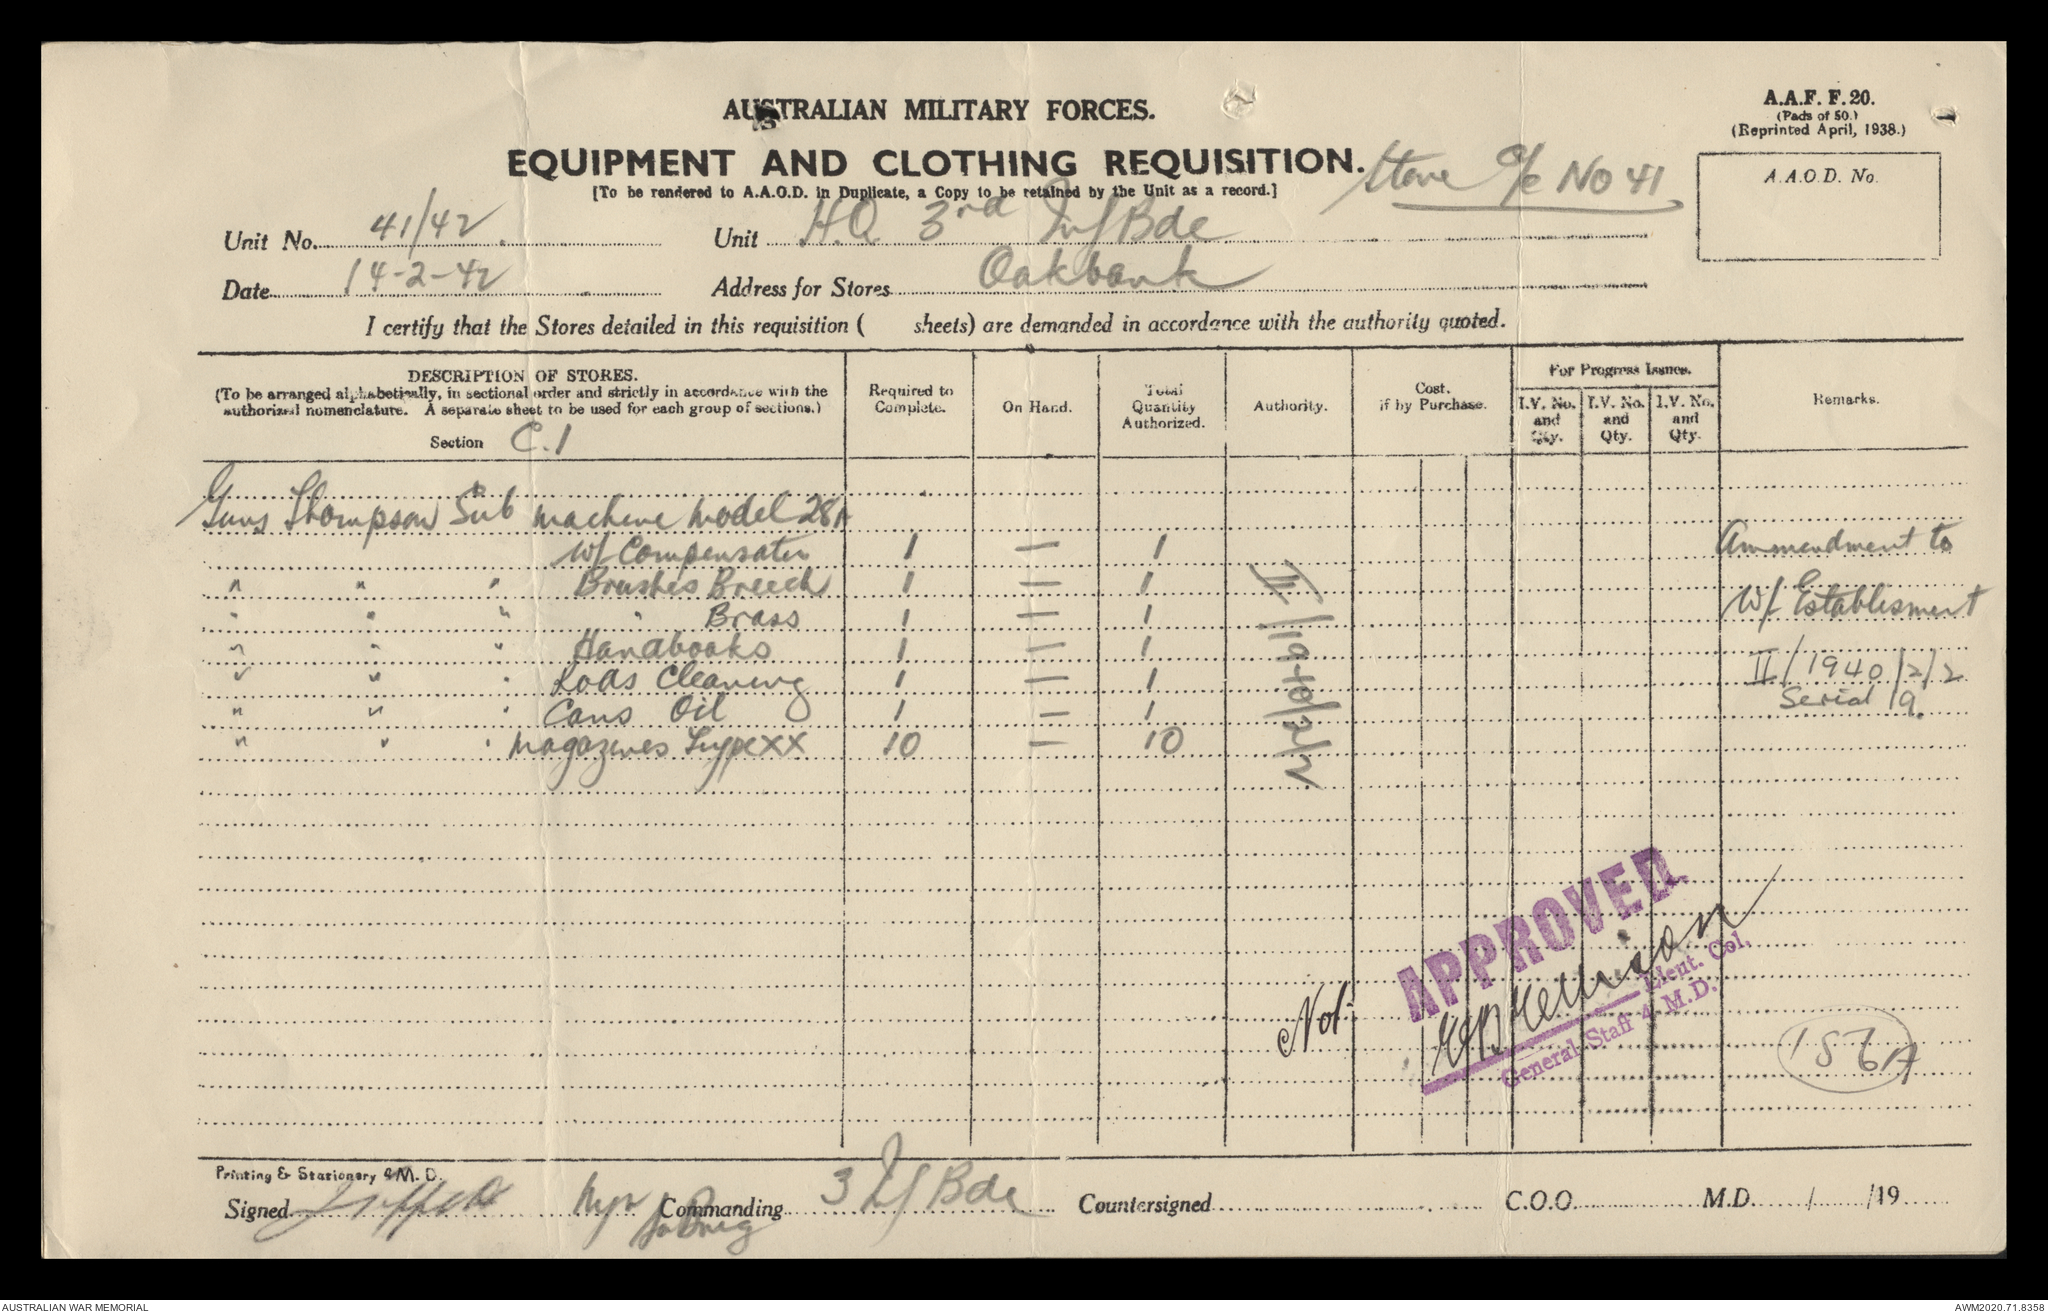 AUSTRALIAN MILITARY FORCES.
A.A.F. F. 20.
(Pads of 50.)
(Reprinted April, 1938.)
EQUIPMENT AND CLOTHING REQUISITION.
[To be rendered to A.A.O.D. in Duplicate, a Copy to be retained by the Unit as a record.]
Store O/C No 41
A.A.O.D. No.
Unit No. 41/42 Unit H.Q 3rd Inf Bde
Date 14-2-42 Address for Stores Oakbank
I certify that the Stores detailed in this requisition ( sheets) are demanded in accordance with the authority quoted.
DESCRIPTION OF STORES.
(To be arranged alphabetically, in sectional order and strictly in accordance with the
authorized nomenclature. A separate sheet to be used for each group of sections.)
Section C.1
Required to Complete.
On Hand.
Total Quantity Authorized.
Authority.
Cost. if by Purchase.
For Progress Issues.
I.V. No. and Qty.
I.V. No. and Qty.
I.V. No. and Qty.
Remarks.
Guns Thompson Sub machine model 28A
w/ Compensator 1 — 1 Ammendment to
" " " Brushes Breech 1 — 1
" " " " Brass 1 — 1 W/ Establisment
" " " Handbooks 1 — 1
" " " Rods Cleaning 1 — 1 II/1940/2/2
" " " Cans Oil 1 — 1 Serial 19.
" " " Magazines Type XX 10 — 10
II/1940/2/2
APPROVED
Not
Lieut. Col.
General Staff 4 M.D.
186A
Printing & Stationery 4 M. D.
Signed Mjr Commanding 3 Inf Bde Countersigned C.O.O. M.D. / /19